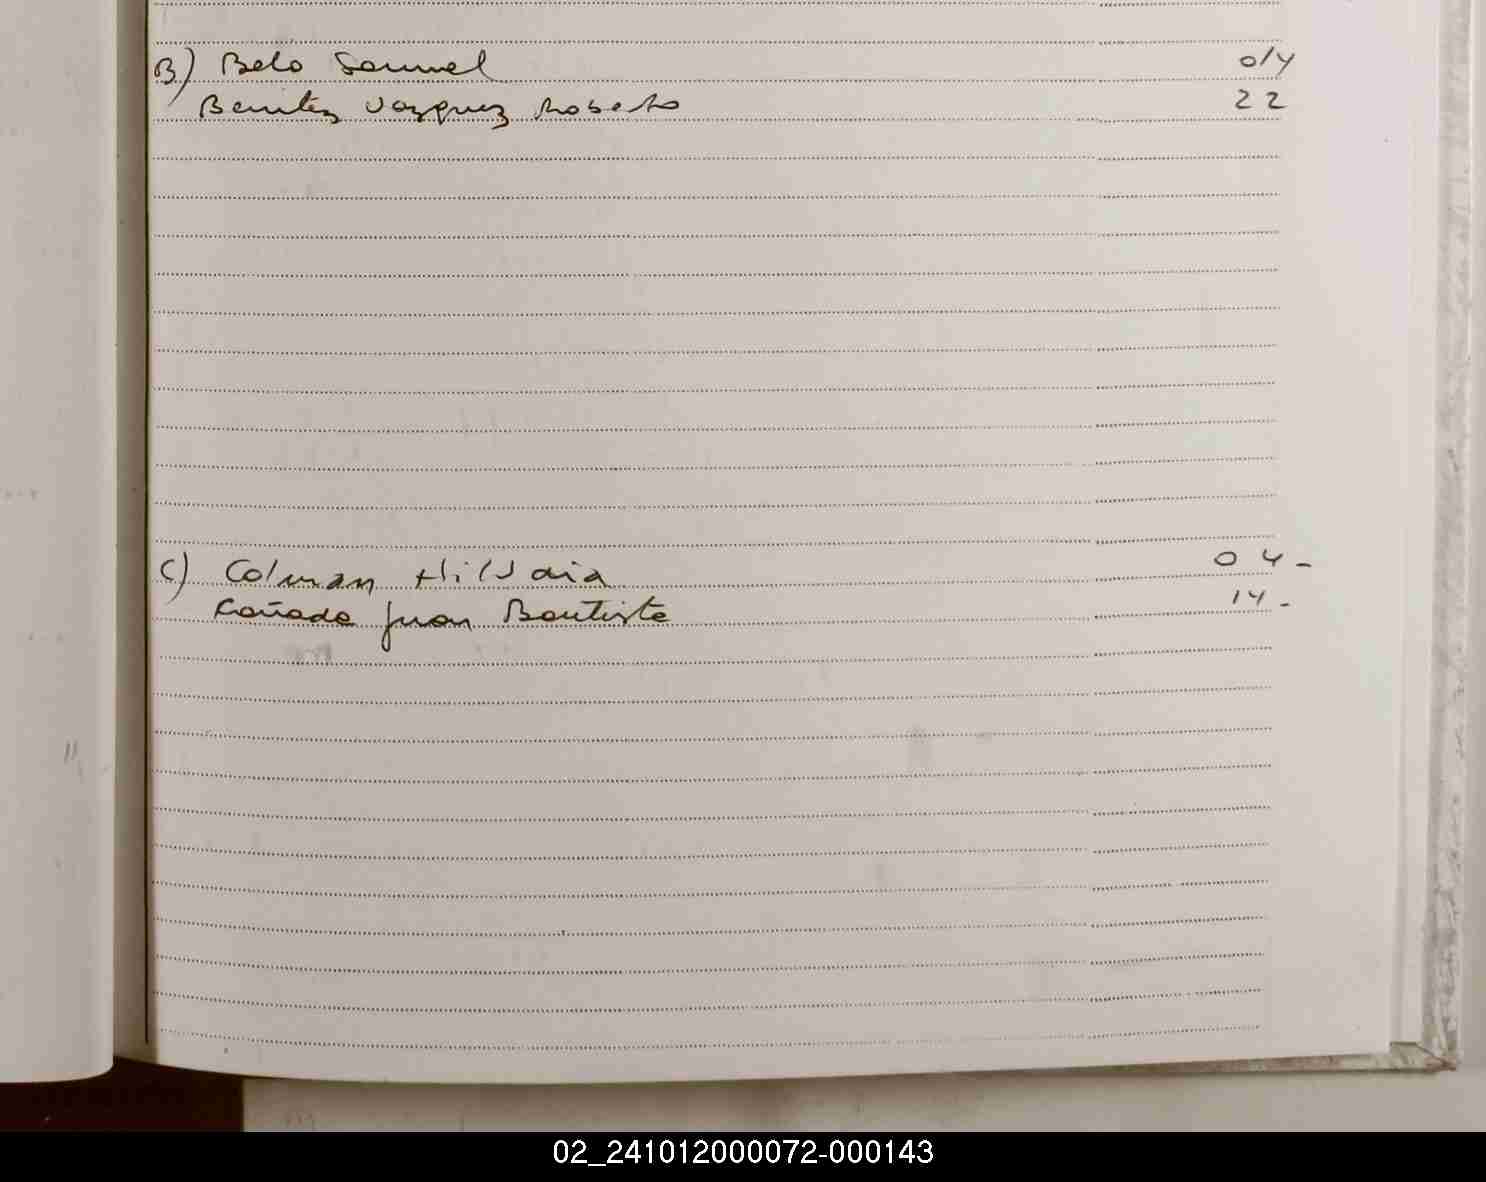 B) Belo Samuel 04
Benitez Vazquez Roberto 22
C) Colman Hildaia 04-
Cañada Juan Bautista 14-
02_241012000072-000143